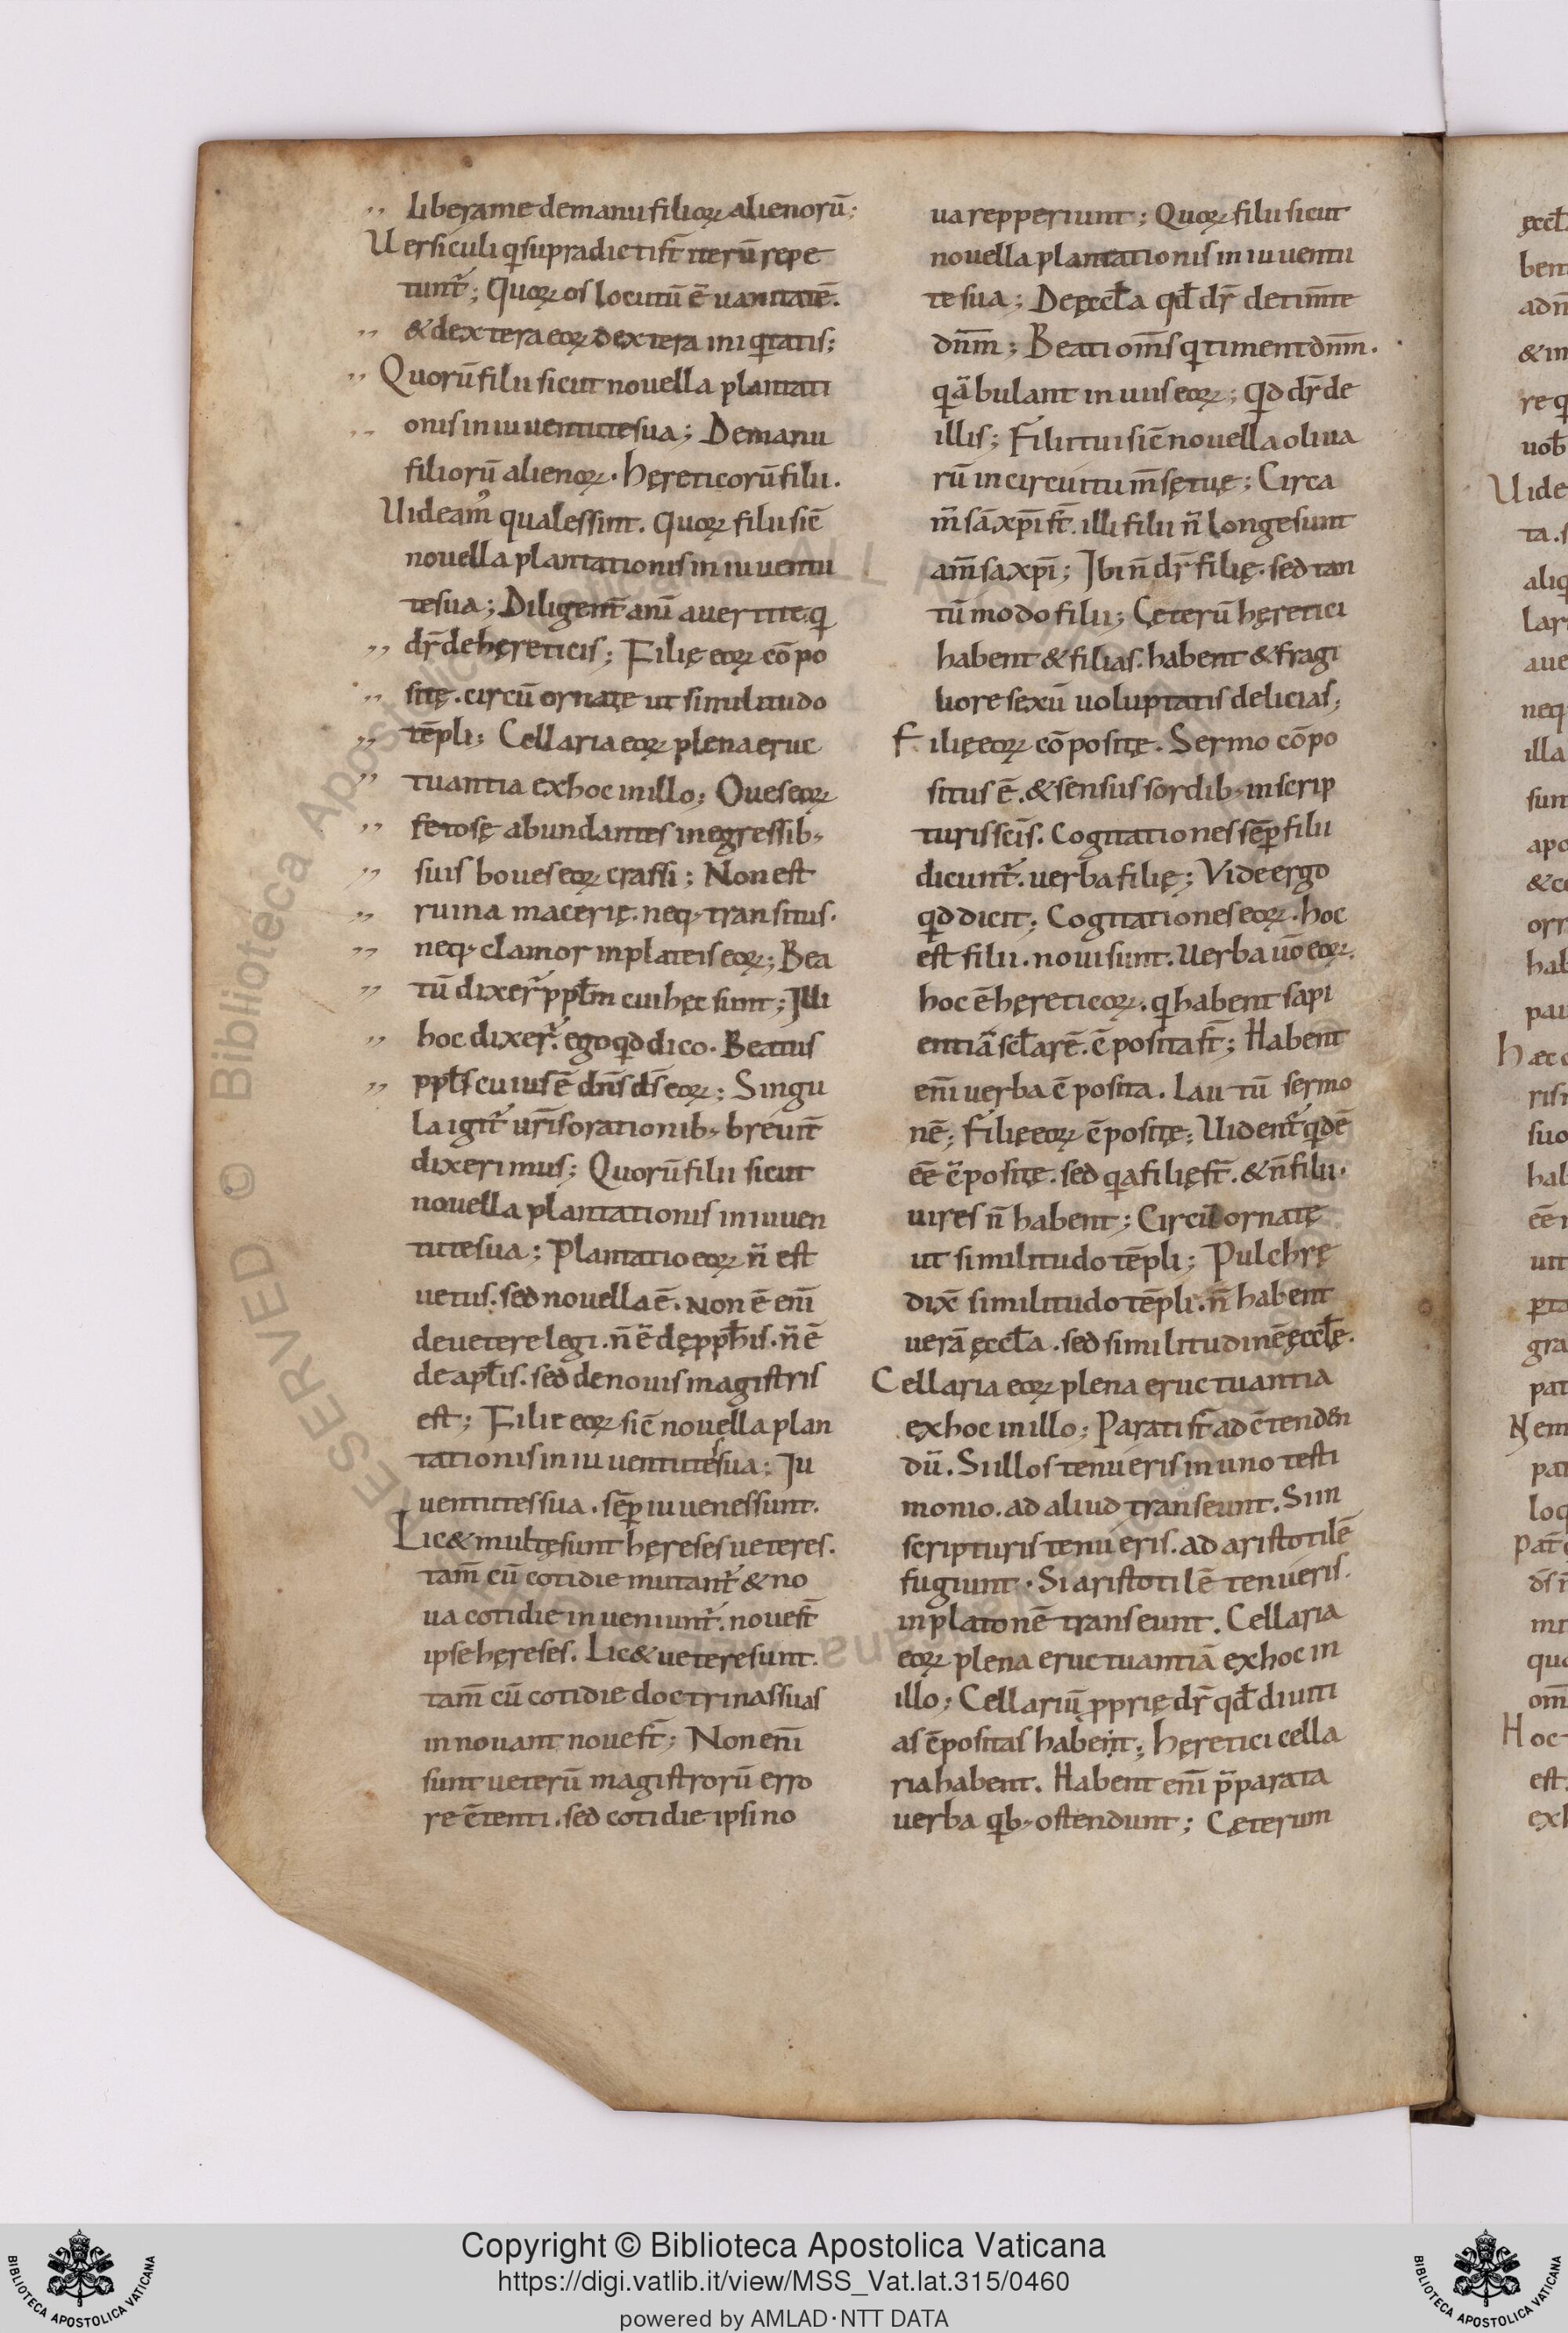 ,, Libera me de manu filioꝝ alienorū;
Uersiculi q̄ supradicti st̄ iterū repe
tunt᷑; Quoꝝ os locutū ē uanitatē.
,, & dextera eoꝝ dextera iniq̄tatis;
,, Quorū filii sicut nouella plantati
,, onis in iuuentute sua; De manu
filiorū alienoꝝ. hęreticorū filii.
Uideam᷒ quales sint. Quoꝝ filii sic̄
nouella plantationis in iuuentu
te sua; Diligent̄ anī auertite. q̄
,, dr̄ de hęreticis; Filię eoꝝ cōpo
,, sitę. circū ornatę ut similitudo
,, tēpli; Cellaria eoꝝ plena eruc
,, tuantia ex hoc in illo; Oues eoꝝ
,, fetosę abundantes in egressib;
,, suis boues eoꝝ crassi; Non est
,, ruina macerię. neq; transitus.
,, neq; clamor in plateis eoꝝ; Bea
,, tū dixer̄ ppłm cui hęc sunt; Illi
,, hoc dixer̄. ego qd dico. Beatus
,, ppłs cuius ē dn̄s ds̄ eoꝝ; Singu
la igit᷑ ur̄is orationib; breuit̄
dixerimus; Quorū filii sicut
nouella plantationis in iuuen
tute sua; Plantatio eoꝝ n̄ est
uetus. sed nouella ē. Non ē enī
de uetere legi. n̄ ē dę pphis. n̄ ē
de apłis. sed de nouis magistris
est; Filii eoꝝ sic̄ nouella plan
tationis in iuuentute sua; Iu
uentutes sua. sēp iuuenes sunt.
Lic& multę sunt hęreses ueteres.
tam̄ cū cotidie mutant᷑ & no
ua cotidie inueniunt᷑. nouę st̄
ipse hęreses. Lic& uetere sunt.
tam̄ cū cotidie doctrinas suas
innouant nouę st̄; Non enī
sunt ueterū magistrorū erro
re c̄tenti. sed cotidie ipsi no
ua repperiunt; Quoꝝ filii sicut
nouella plantationis in iuuentu
te sua; De ęccła qd̄ dr̄ de tim̄te
dn̄m; Beati oms̄ q̄ timent dn̄m.
q̄ ābulant in uiis eoꝝ; Qd dr̄ de
illis; Filii tui sic̄ nouella oliua
rū in circuitu m̄sę tuę; Circa
m̄sā xp̄i st̄. illi filii n̄ longe sunt
a m̄sa xp̄i; Ibi n̄ dr̄ filię. sed tan
tū modo filii; Cęterū hęretici
habent & filias. habent & fragi
liore sexū uoluptatis delicias;
Filię eoꝝ cōpositę. Sermo cōpo
situs ē. & sensus sordib; in scrip
turis scīs. Cogitationes sēp filii
dicunt᷑. uerba filię; Vide ergo
qd dicit; Cogitationes eoꝝ. hoc
est filii. noui sunt. Uerba uō eoꝝ.
hoc ē hęreticoꝝ. q̄ habent sapi
entiā scłarē. c̄posita st̄; Habent
enī uerba c̄posita. Lautū sermo
nē; Filię eoꝝ c̄positę; Uident᷑ qdē
eē c̄positę. sed q̄a filię st̄. & n̄ filii.
uires n̄ habent; Circū ornatę
ut similitudo tēpli; Pulchrę
dix̄ similitudo tēpli. n̄ habent
uerā ęccła. sed similitudinē ęccłę.
Cellaria eoꝝ plena eructuantia
ex hoc in illo; Parati st̄ ad c̄tenden
dū. Si illos tenueris in uno testi
monio. ad aliud transeunt. Si in
scripturis tenueris. ad aristotilē
fugiunt. Si aristotilē tenueris.
in platonē transeunt. Cellaria
eoꝝ plena eructuantiā ex hoc in
illo; Cellariū pprię dr̄ qd̄ diuiti
as c̄positas habent; hęretici cella
ria habent. Habent enī p̄parata
uerba qb; ostendunt; Cęterum
Copyright © Biblioteca Apostolica Vaticana
https://digi.vatlib.it/view/MSS_Vat.lat.315/0460
powered by AMLAD·NTT DATA
BIBLIOTECA APOSTOLICA VATICANA
BIBLIOTECA APOSTOLICA VATICANA